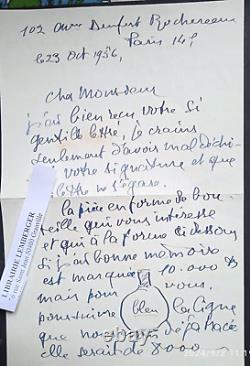 102 ave Denfert Rochereau
Paris 14e
le 23 Oct 1956,
Cher Monsieur
j'ai bien reçu votre si
gentille lettre, je crains
seulement d'avoir mal déchi-
votre signature et que
lettre ne s'égare.
la pièce en forme de bou-
teille qui vous intéresse
et qui a la forme ci dessous
si j'ai bonne mémoire
est marquée 10.000
mais pour
poursuivre
bleu
la ligne
que nous avons déjà tracé
elle serait de 8000
LIBRAIRIE LEMBERGER
2024/9/2 11:19